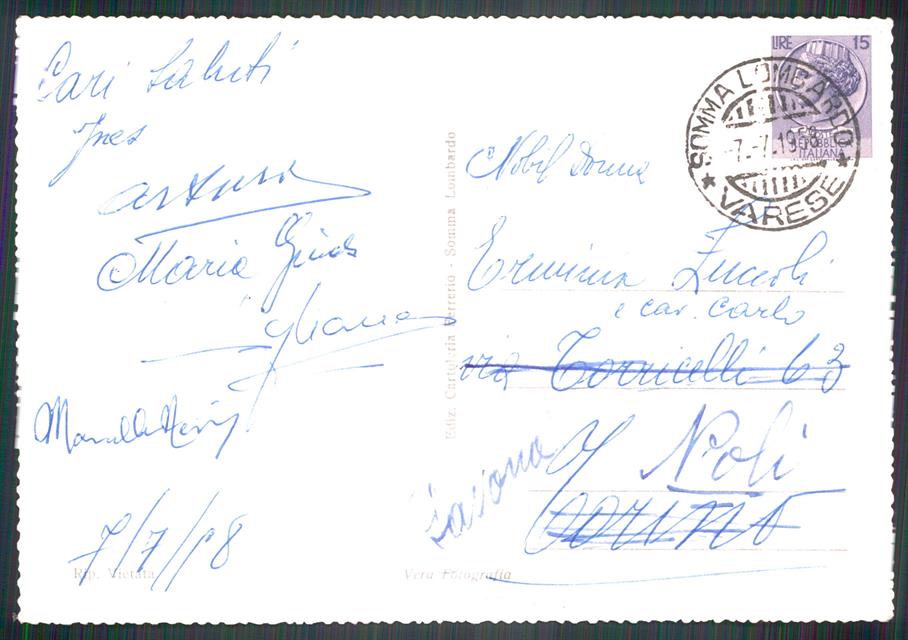 Cari Saluti
Ines
Arturo
Maria
Rip. Vietata
7/7/58
Ediz. Cartoleria Ferrerio - Somma Lombardo
Vera Fotografia
LIRE 15
REPUBBLICA
ITALIANA
SOMMA LOMBARDO
-7.-7.1958
VARESE
Nobil Donna
Erminia Zuccoli
e cav. Carlo
via Torricelli 63
Noli
Torino
Savona